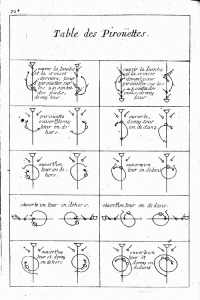 Table des Pirouettes.
ouvrir la Jambe
et la croiser
derriere, pour
pirouetter sur
les 2. pointes
des pieds,
demy tour
ouvrir la Jambe
et la croiser
devant pour
pirouetter sur les
2. pointes des
pieds, demy
tour
pirouette
ouverte demy
tour en de-
hors.
ouverte,
demy tour
en dedans
ouverte un
tour en de-
hors.
ouverte un
tour en dedans
ouverte un tour en dehors.
ouverte un tour en dedans.
ouverte un
tour et demy
en dehors
ouverte un
tour et
demy en
dedans